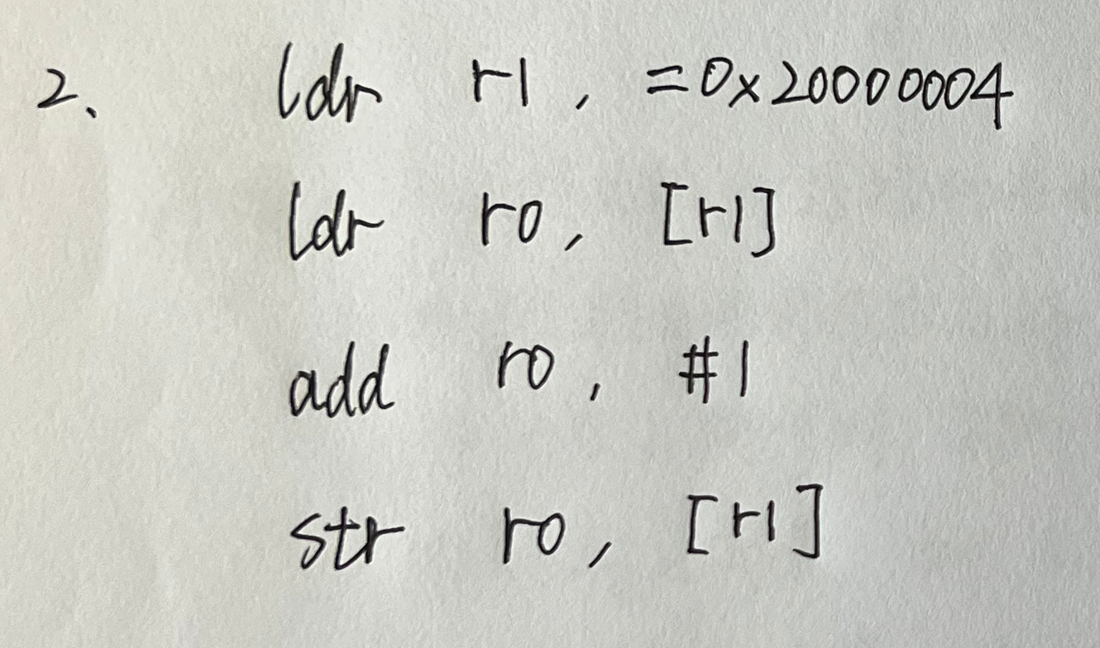 2、 ldr r1, =0x20000004
ldr r0, [r1]
add r0, #1
str r0, [r1]